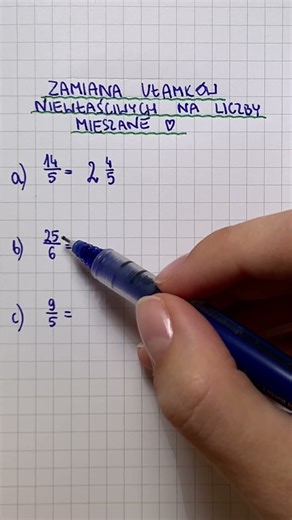 ZAMIANA UŁAMKÓW
NIEWŁAŚCIWYCH NA LICZBY
MIESZANE ♡
a) 14/5 = 2 4/5
b) 25/6 =
c) 9/5 =